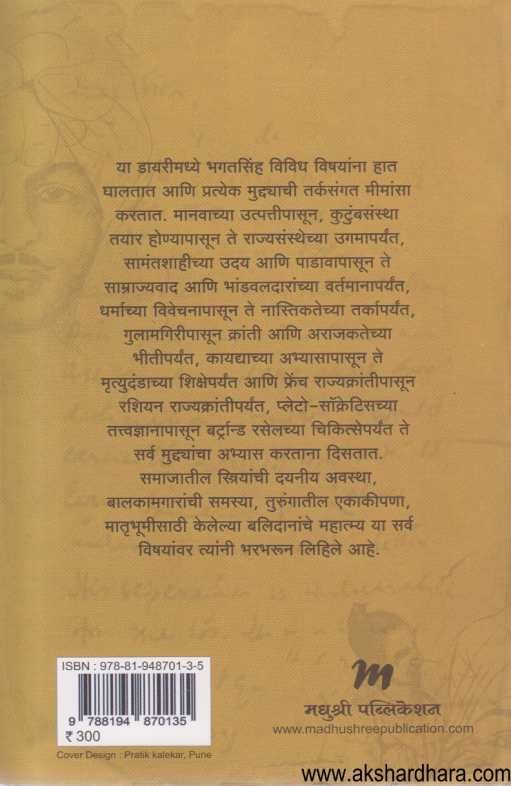 या डायरीमध्ये भगतसिंह विविध विषयांना हात
घालतात आणि प्रत्येक मुद्द्याची तर्कसंगत मीमांसा
करतात. मानवाच्या उत्पत्तीपासून, कुटुंबसंस्था
तयार होण्यापासून ते राज्यसंस्थेच्या उगमापर्यंत,
सामंतशाहीच्या उदय आणि पाडावापासून ते
साम्राज्यवाद आणि भांडवलदारांच्या वर्तमानापर्यंत,
धर्माच्या विवेचनापासून ते नास्तिकतेच्या तर्कापर्यंत,
गुलामगिरीपासून क्रांती आणि अराजकतेच्या
भीतीपर्यंत, कायद्याच्या अभ्यासापासून ते
मृत्युदंडाच्या शिक्षेपर्यंत आणि फ्रेंच राज्यक्रांतीपासून
रशियन राज्यक्रांतीपर्यंत, प्लेटो-सॉक्रेटिसच्या
तत्त्वज्ञानापासून बर्ट्रान्ड रसेलच्या चिकित्सेपर्यंत ते
सर्व मुद्द्यांचा अभ्यास करताना दिसतात.
समाजातील स्त्रियांची दयनीय अवस्था,
बालकामगारांची समस्या, तुरुंगातील एकाकीपणा,
मातृभूमीसाठी केलेल्या बलिदानांचे महात्म्य या सर्व
विषयांवर त्यांनी भरभरून लिहिले आहे.
ISBN : 978-81-948701-3-5
9 788194 870135
₹ 300
Cover Design : Pratik kalekar, Pune
m
मधुश्री पब्लिकेशन
www.madhushreepublication.com
www.akshardhara.com